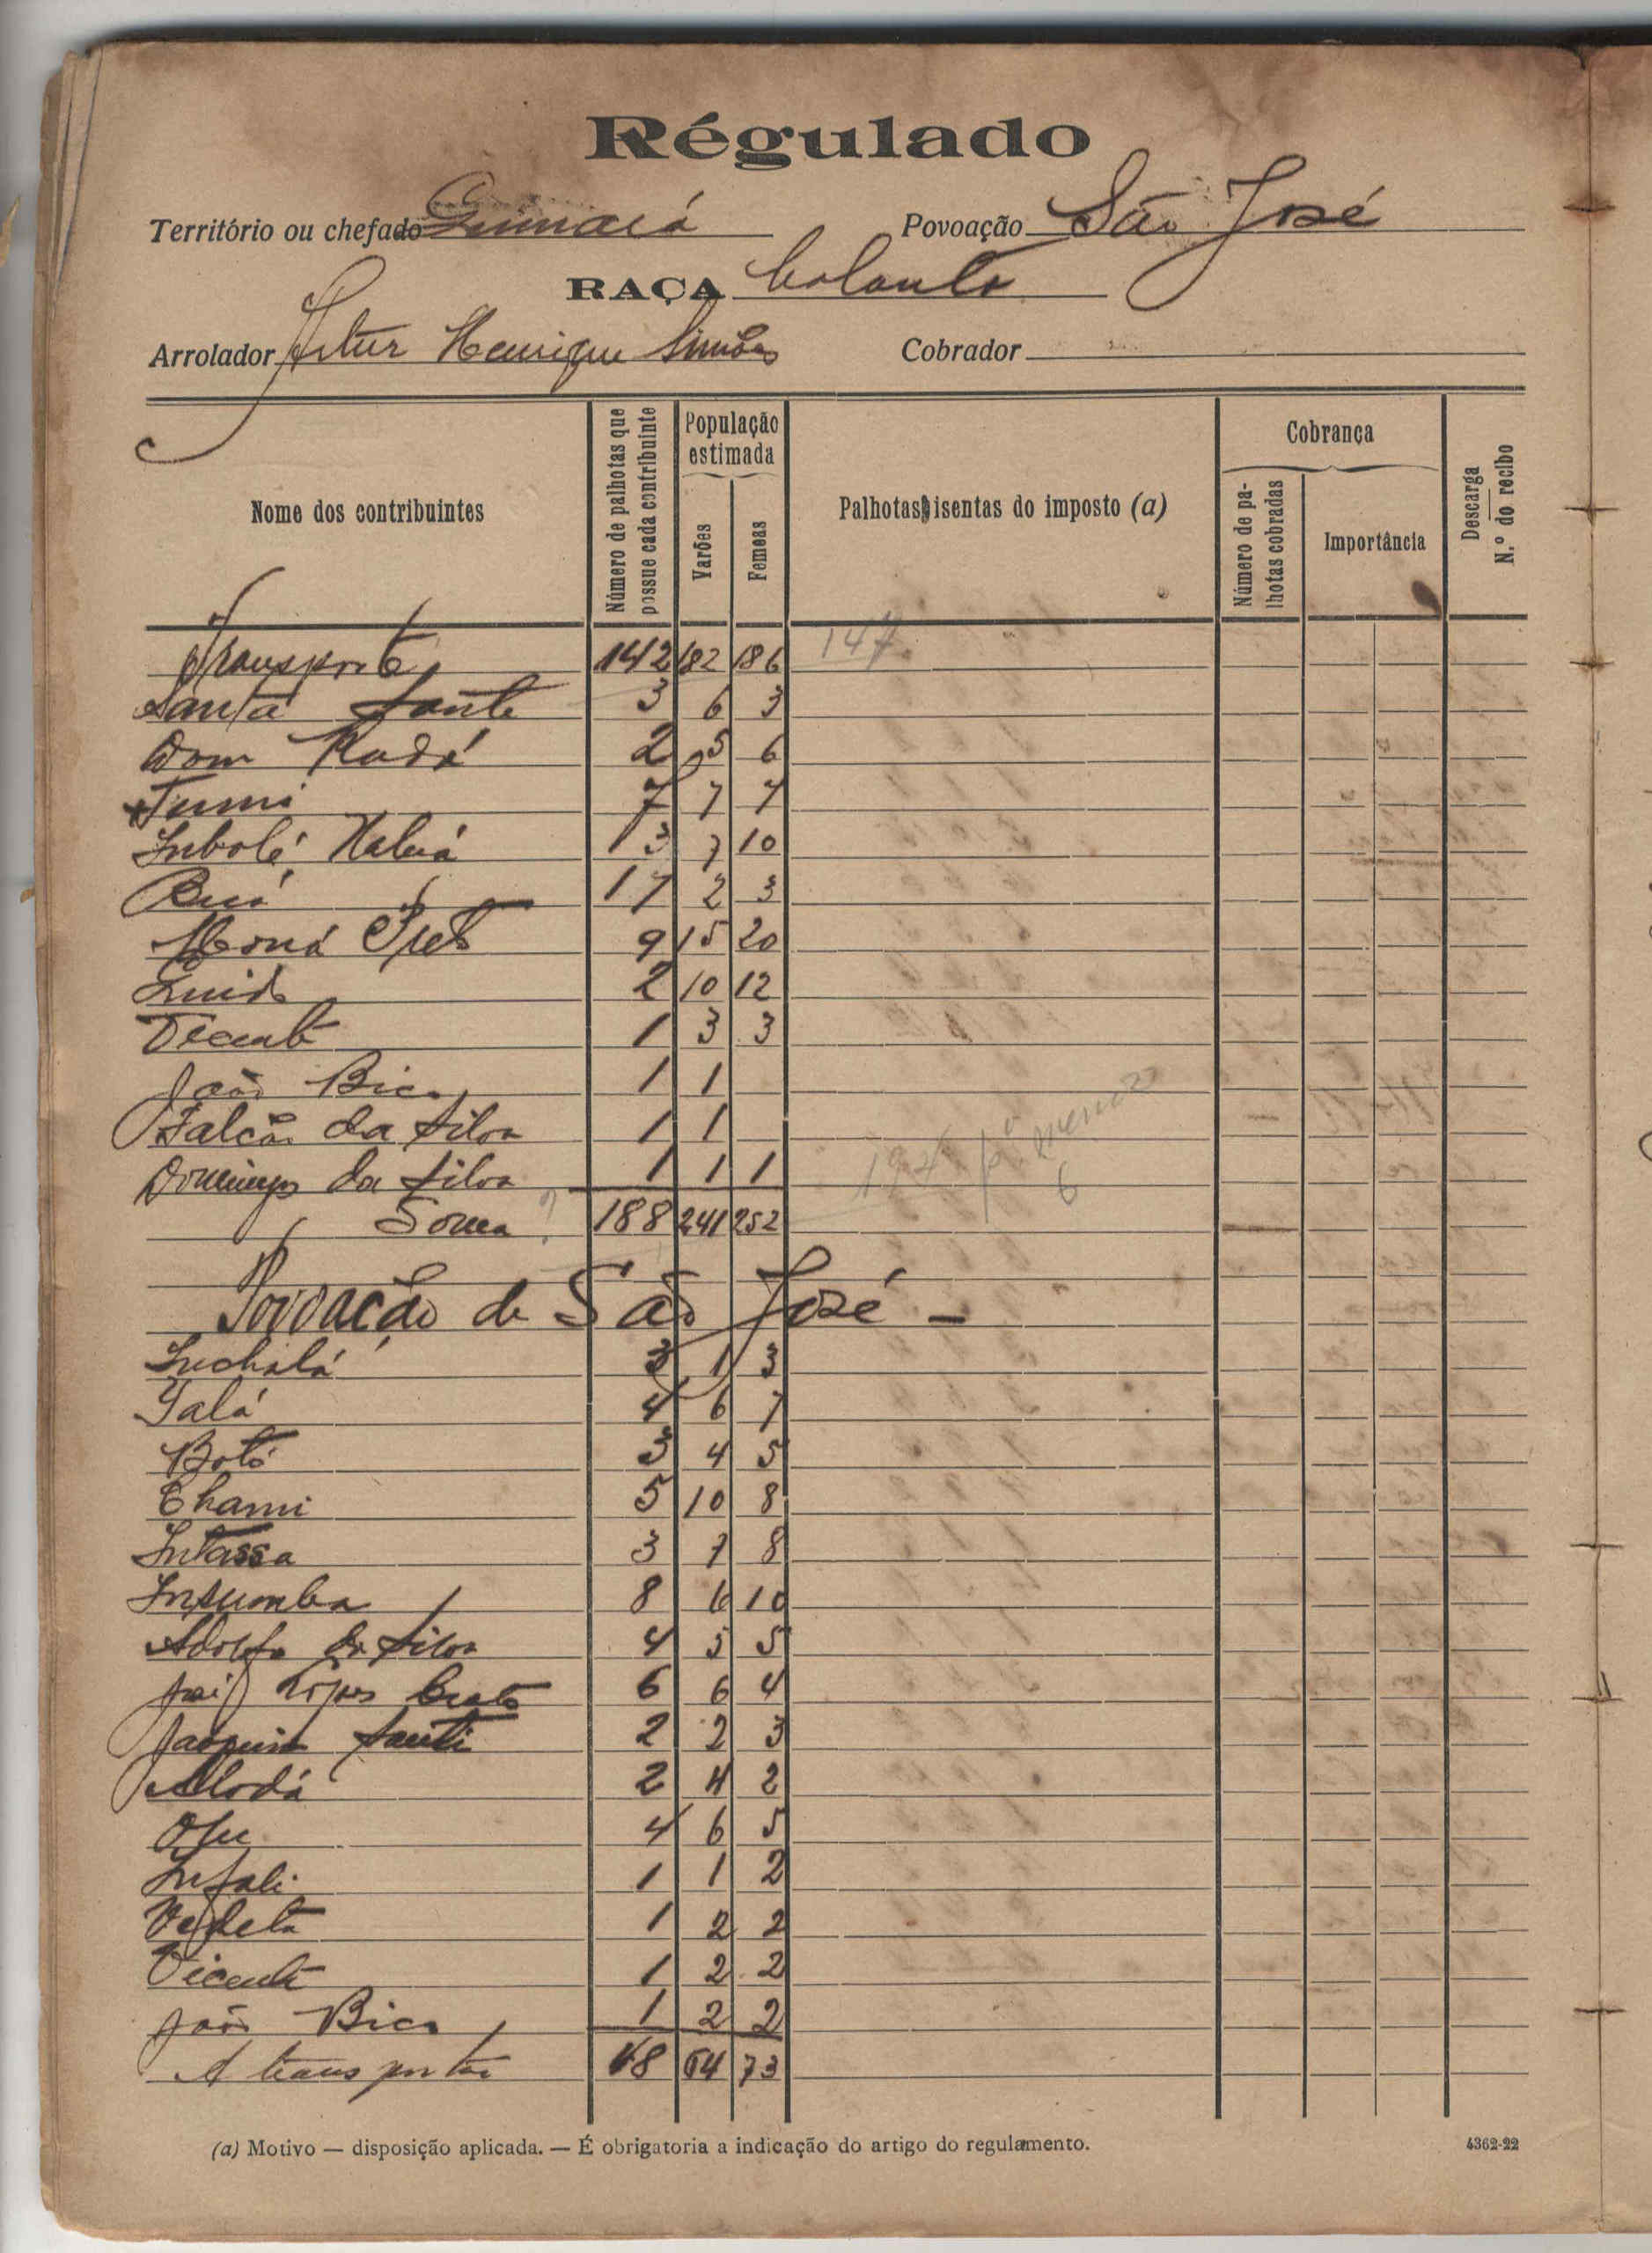 Régulado
Território ou chefado Povoação São José
RAÇA balanta
Arrolador Artur Henrique Simões Cobrador
Nome dos contribuintes Número de palhotas que possue cada contribuinte População estimada Varões Femeas Palhotas isentas do imposto (a) Cobrança Número de palhotas cobradas Importância Descarga N.º do recibo
Transporte 142 182 186 147
Santa Fante 3 6 3
Dom 2 5 6
Tumi 7 7 7
3 7 10
17 2 3
9 15 20
2 10 12
Vicente 1 3 3
João Bico 1 1
Falcão da Silva 1 1
Domingos da Silva 1 1 1
Soma ? 188 241 252
6
Povoação de São José -
3 1 3
Yalá 4 6 7
Botó 3 4 5
Chami 5 10 8
Intassa 3 7 8
Insumba 8 6 10
Adolfo da Silva 4 5 5
Lopes 6 6 4
Joaquim 2 2 3
2 4 2
4 6 5
Infali 1 1 2
1 2 2
Vicente 1 2 2
João Bico 1 2 2
A transportar 48 64 73
(a) Motivo — disposição aplicada. — É obrigatoria a indicação do artigo do regulamento. 4362-22